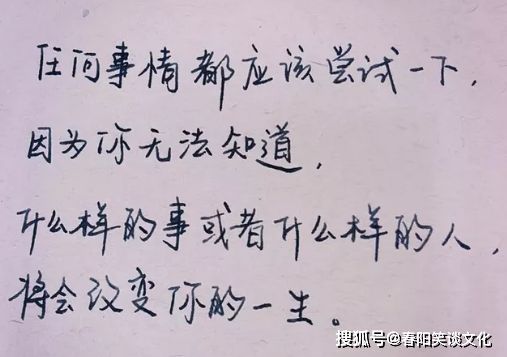 任何事情都应该尝试一下，
因为你无法知道，
什么样的事或者什么样的人，
将会改变你的一生。
搜狐号@春阳笑谈文化